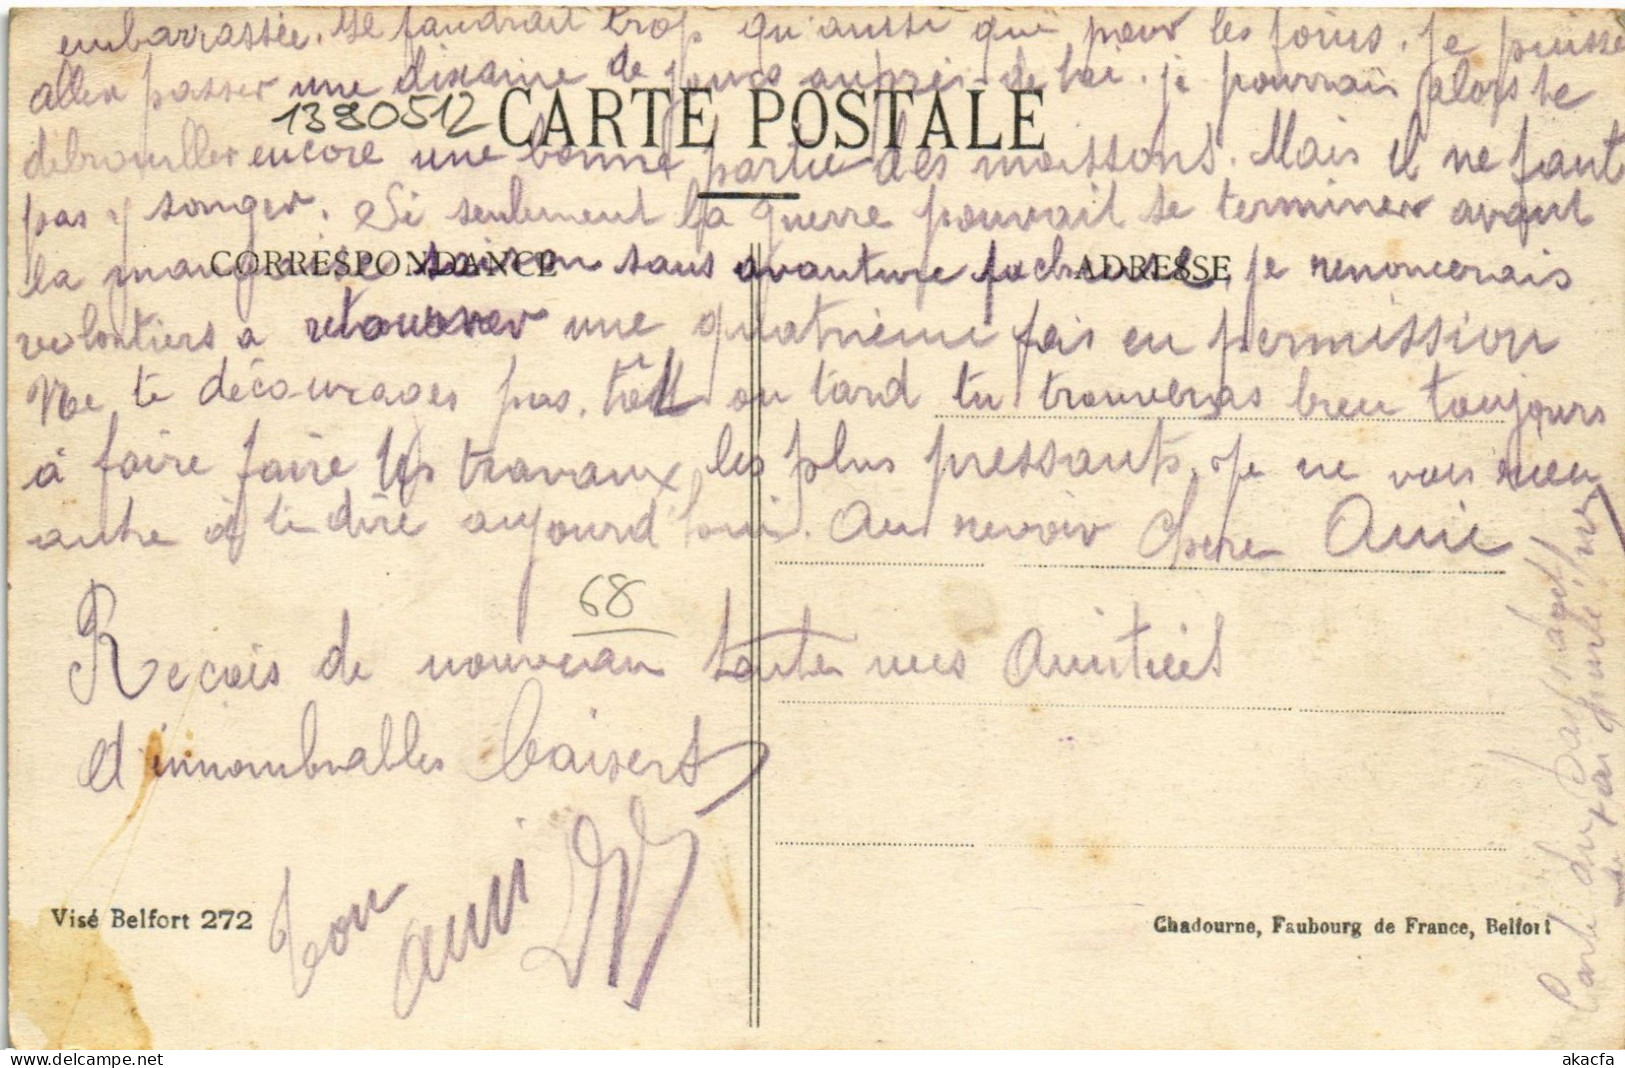 embarrassée. Il faudrait trop qu'aussi que pour les foins. je puisse
allez passer une dixaine de jours auprès de toi. je pourrais alors te
1380512 CARTE POSTALE
debrouiller encore une bonne partie des moissons. Mais il ne faut
pas y songer. Si seulement la guerre pouvait se terminer avant
CORRESPONDANCE ADRESSE
la mauvaise saison sans avanture facheuse, je renoncerais
volontiers a retourner une quatrième fois en permission
Ne te décourages pas, tôt ou tard tu trouveras bien toujours
à faire faire les travaux les plus pressants. Je ne vois rien
autre à te dire aujourd'hui. Au revoir Chere Amie
68
Reçois de nouveau toutes mes Amitiés
d'innombrables baisers
Ton ami
Visé Belfort 272
Chadourne, Faubourg de France, Belfort
Carte du